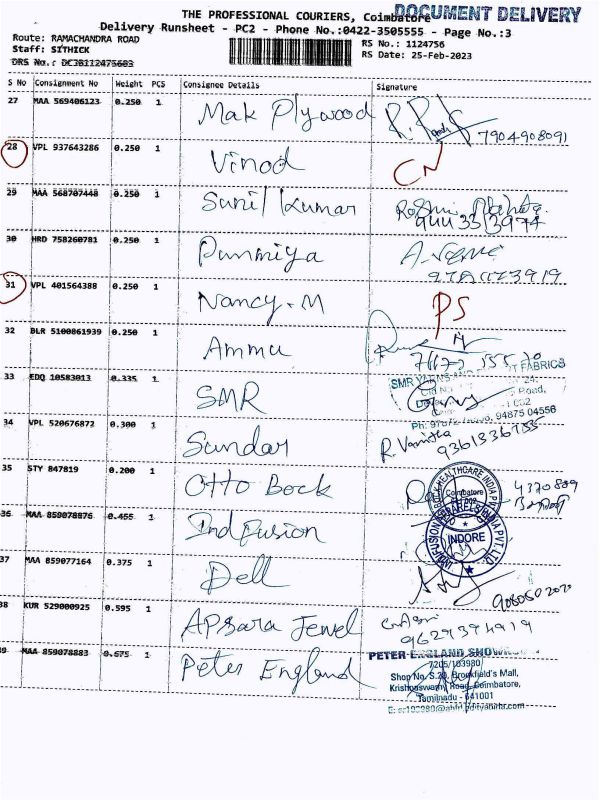 THE PROFESSIONAL COURIERS, Coimbatore
DOCUMENT DELIVERY
Delivery Runsheet - PC2 - Phone No.:0422-3505555 - Page No.:3
Route: RAMACHANDRA ROAD
RS No.: 1124756
Staff: SITHICK
RS Date: 25-Feb-2023
DRS No.: DCJB112475603
S No Consignment No Weight PCS Consignee Details Signature
27 MAA 569406123 0.250 1 Mak Plywood
7904908091
28 VPL 937643286 0.250 1 Vinod CN
29 MAA 568707448 0.250 1 Sunil Kumar
30 HRD 758260781 0.250 1 Punmiya
31 VPL 401564388 0.250 1 Nancy.M PS
32 BLR 5100861939 0.250 1 Ammu
33 EDQ 10583013 0.335 1 SMR
SMR YARNS AND FABRICS
Road,
94875 04556
34 VPL 520676872 0.300 1 Sundar
R. Vanitha
35 STY 847819 0.200 1 Otto Bock
4370809
Coimbatore
36 MAA 859078876 0.455 1 Indfusion
INDORE
37 MAA 859077164 0.375 1 Dell
38 KUR 529000925 0.595 1 Apsara Jewel
9629394919
39 MAA 859078883 0.675 1 Peter England
PETER ENGLAND
7205/103980
Shop No. S.20, Brookfield's Mall,
Krishnaswamy Road, Coimbatore,
Tamilnadu - 641001